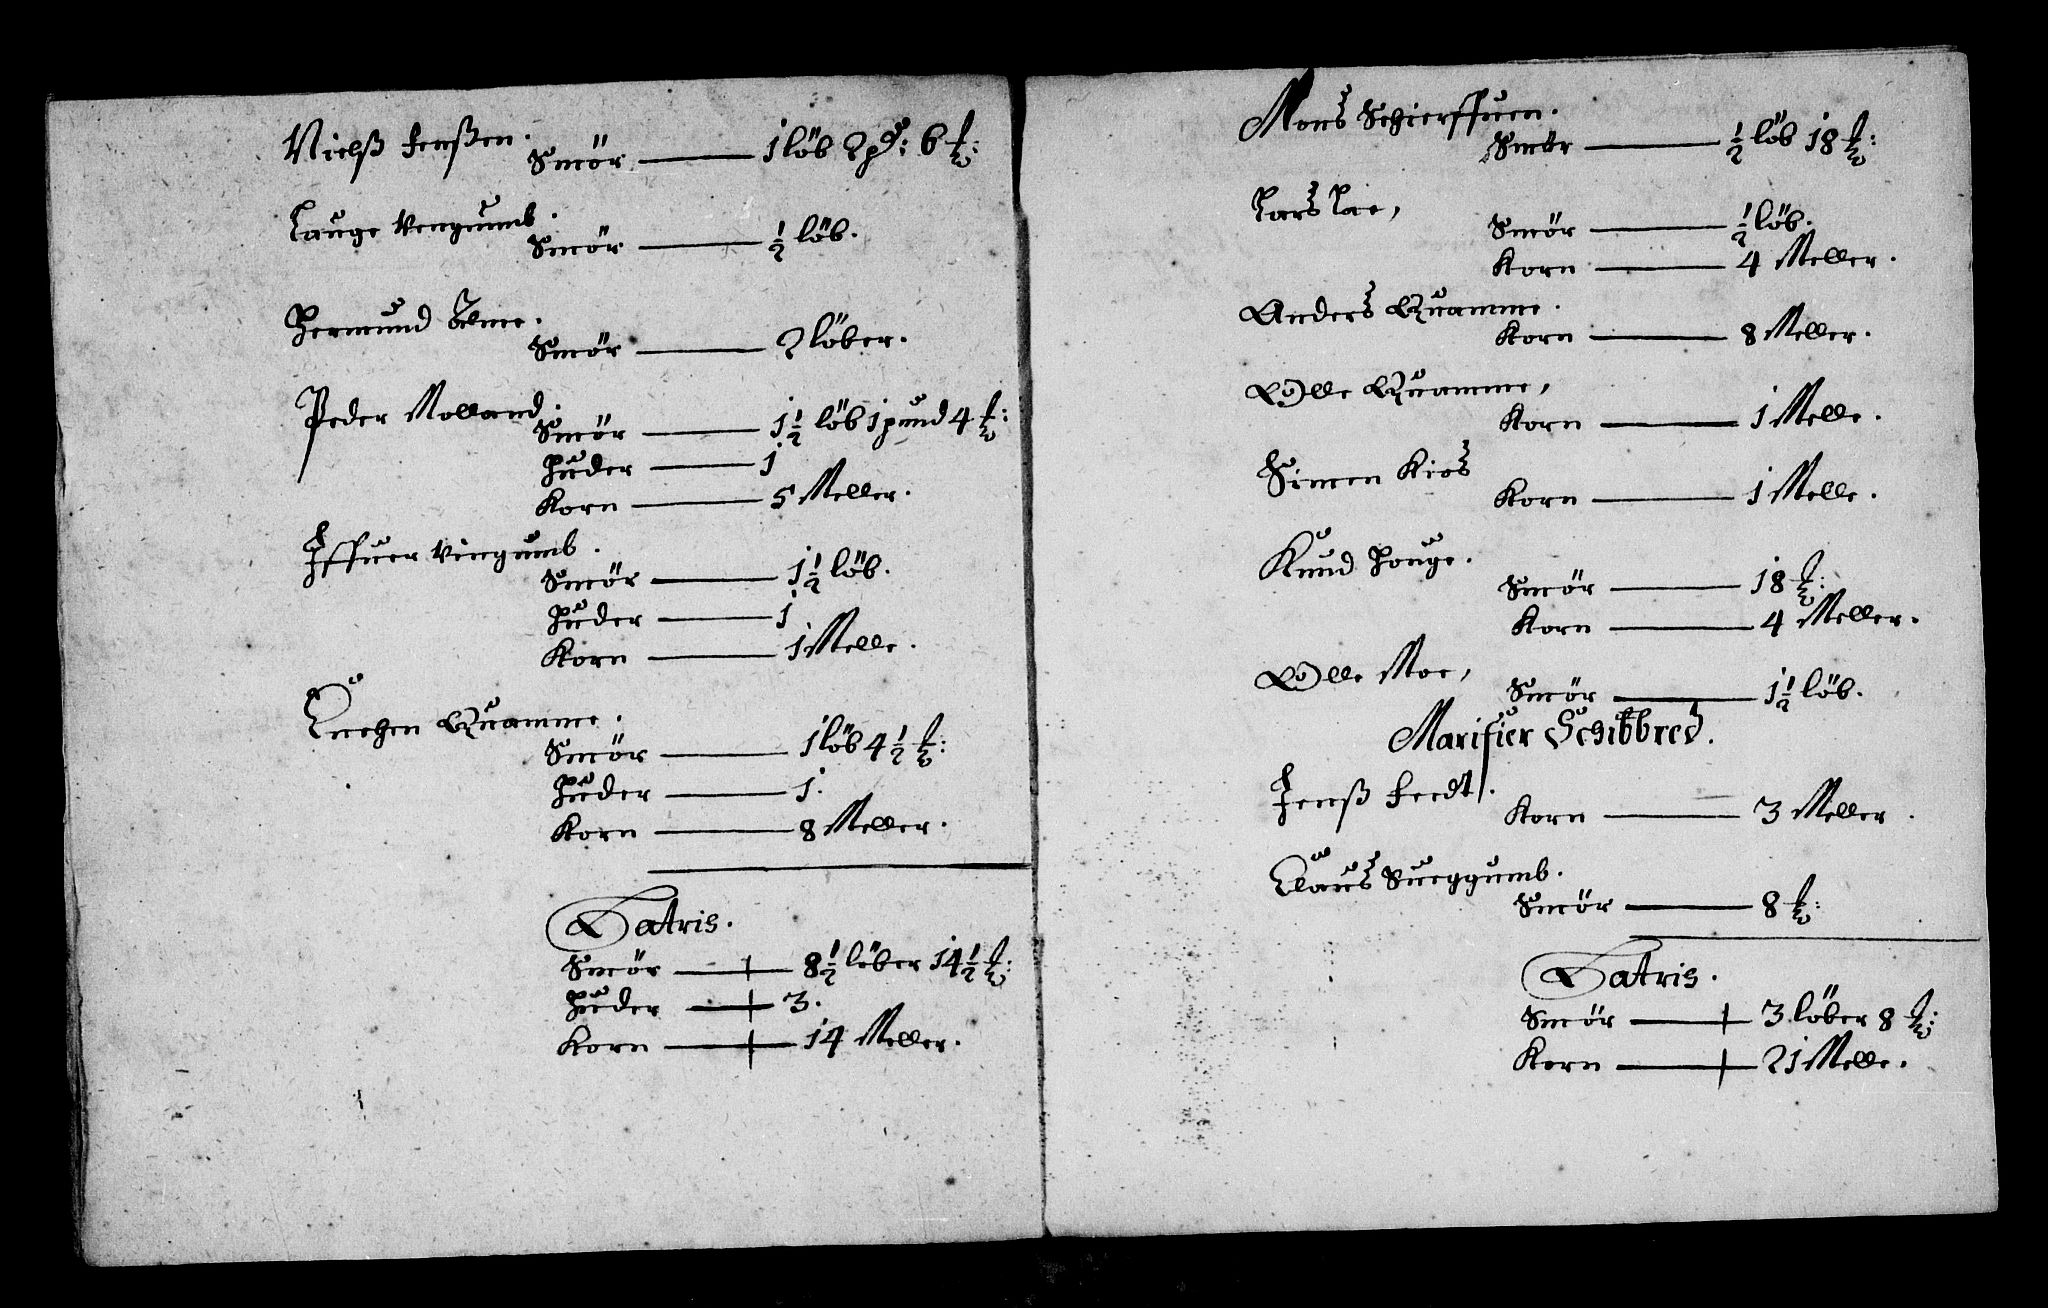 Nielß Jenßen.
Smör — 1 löb 2 pd: 6 ℔:
Lauge Vengumb.
Smör — ½ löb.
Hermund Tålme.
Smör — 2 löber.
Peder Molland.
Smör — 1½ löb 1 pund 4 ℔:
Huder — 1
Korn — 5 Meller.
Iffuer Vingumb.
Smör — 1½ löb.
Huder — 1
Korn — 1 Melle.
Quamme.
Smör — 1 löb 4½ ℔:
Huder — 1.
Korn — 8 Meller.
Latris.
Smör — 8½ löber 14½ ℔:
Huder — 3.
Korn — 14 Meller.
Mons Schierffuen.
Smör — ½ löb 18 ℔:
Lars Lie,
Smör — ½ löb.
Korn — 4 Meller.
Anders Quamme.
Korn — 8 Meller.
Olle Quamme,
Korn — 1 Melle.
Simen Kios
Korn — 1 Melle.
Knud Houge.
Smör — 18 ℔:
Korn — 4 Meller.
Olle Moe,
Smör — 1½ löb.
Marifier Schibbred.
Jenß Feedt.
Korn — 3 Meller.
Claus Sueggumb.
Smör — 8 ℔:
Latris.
Smör — 3 löber 8 ℔:
Korn — 21 Melle.